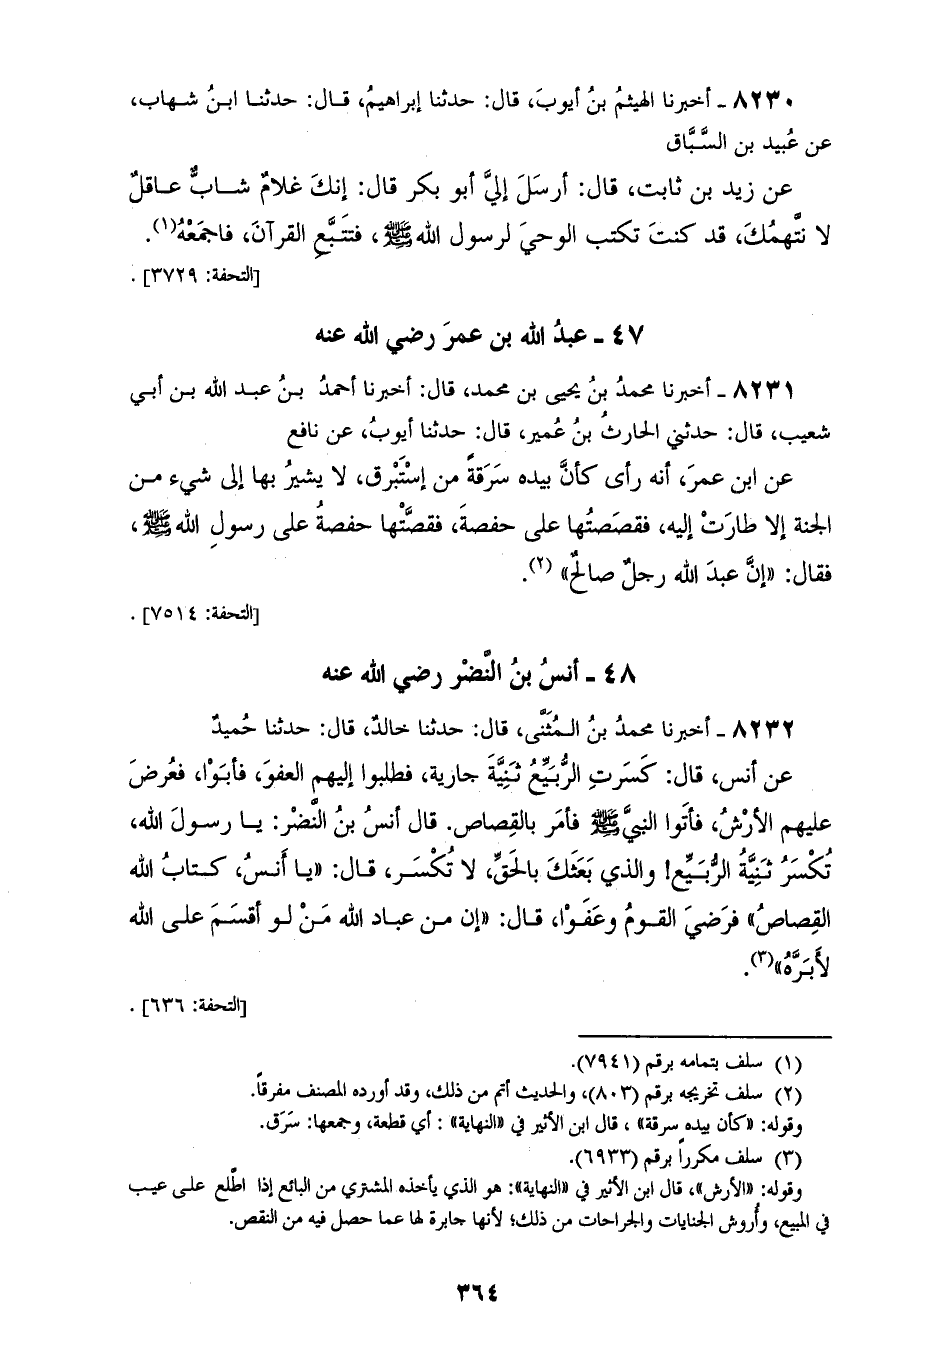 ٨٢٣٠ ـ أخبرنا الهيثمُ بنُ أيوبَ، قال: حدثنا إبراهيمُ، قال: حدثنا ابنُ شهاب،
عن عُبيد بن السَّبَّاق
عن زيد بن ثابت، قال: أرسَلَ إليَّ أبو بكر قال: إنكَ غلامٌ شابٌّ عاقلٌ
لا نتَّهمُكَ، قد كنتَ تكتب الوحيَ لرسول اللهﷺ، فتتَبَّعِ القرآنَ، فاجمَعْهُ(١).
[التحفة: ٣٧٢٩] .
٤٧ ـ عبدُ الله بن عمرَ رضي الله عنه
٨٢٣١ ـ أخبرنا محمدُ بنُ يحيى بن محمد، قال: أخبرنا أحمدُ بنُ عبد الله بن أبي
شعيب، قال: حدثني الحارثُ بنُ عُمير، قال: حدثنا أيوبُ، عن نافع
عن ابن عمرَ، أنه رأى كأنَّ بيده سَرَقةً من إسْتَبْرق، لا يشيرُ بها إلى شيء من
الجنة إلا طارَتْ إليه، فقصَصتُها على حفصةَ، فقصَّتْها حفصةُ على رسولِ اللهﷺ،
فقال: «إنَّ عبدَ الله رجلٌ صالحٌ» (٢).
[التحفة: ٧٥١٤] .
٤٨ ـ أنسُ بنُ النَّضْر رضي الله عنه
٨٢٣٢ ـ أخبرنا محمدُ بنُ المُثنَّى، قال: حدثنا خالدٌ، قال: حدثنا حُميدٌ
عن أنس، قال: كَسَرتِ الرُّبيِّعُ ثَنِيَّةَ جارية، فطلبوا إليهم العفوَ، فأبَوْا، فعُرضَ
عليهم الأرْشُ، فأتَوا النبيَّﷺ فأمَر بالقِصاص. قال أنسُ بنُ النَّضْر: يا رسولَ الله،
تُكْسَرُ ثَنِيَّةُ الرُّبَيِّع! والذي بَعَثكَ بالحَقِّ، لا تُكْسَر، قال: «يا أَنسُ، كتابُ الله
القِصاصُ» فرَضيَ القومُ وعَفَوْا، قال: «إن من عباد الله مَنْ لو أقسَمَ على الله
لأَبَرَّهُ»(٣).
[التحفة: ٦٣٦] .
(١) سلف بتمامه برقم (٧٩٤١).
(٢) سلف تخريجه برقم (٨٠٣)، والحديث أتم من ذلك، وقد أورده المصنف مفرقاً.
وقوله: «كأن بيده سرقة» ، قال ابن الأثير في «النهاية» : أي قطعة، وجمعها: سَرَق.
(٣) سلف مكرراً برقم (٦٩٣٣).
وقوله: «الأرش»، قال ابن الأثير في «النهاية»: هو الذي يأخذه المشتري من البائع إذا اطَّلع على عيب
في المبيع، وأُروش الجنايات والجراحات من ذلك؛ لأنها جابرة لها عما حصل فيه من النقص.
٣٦٤